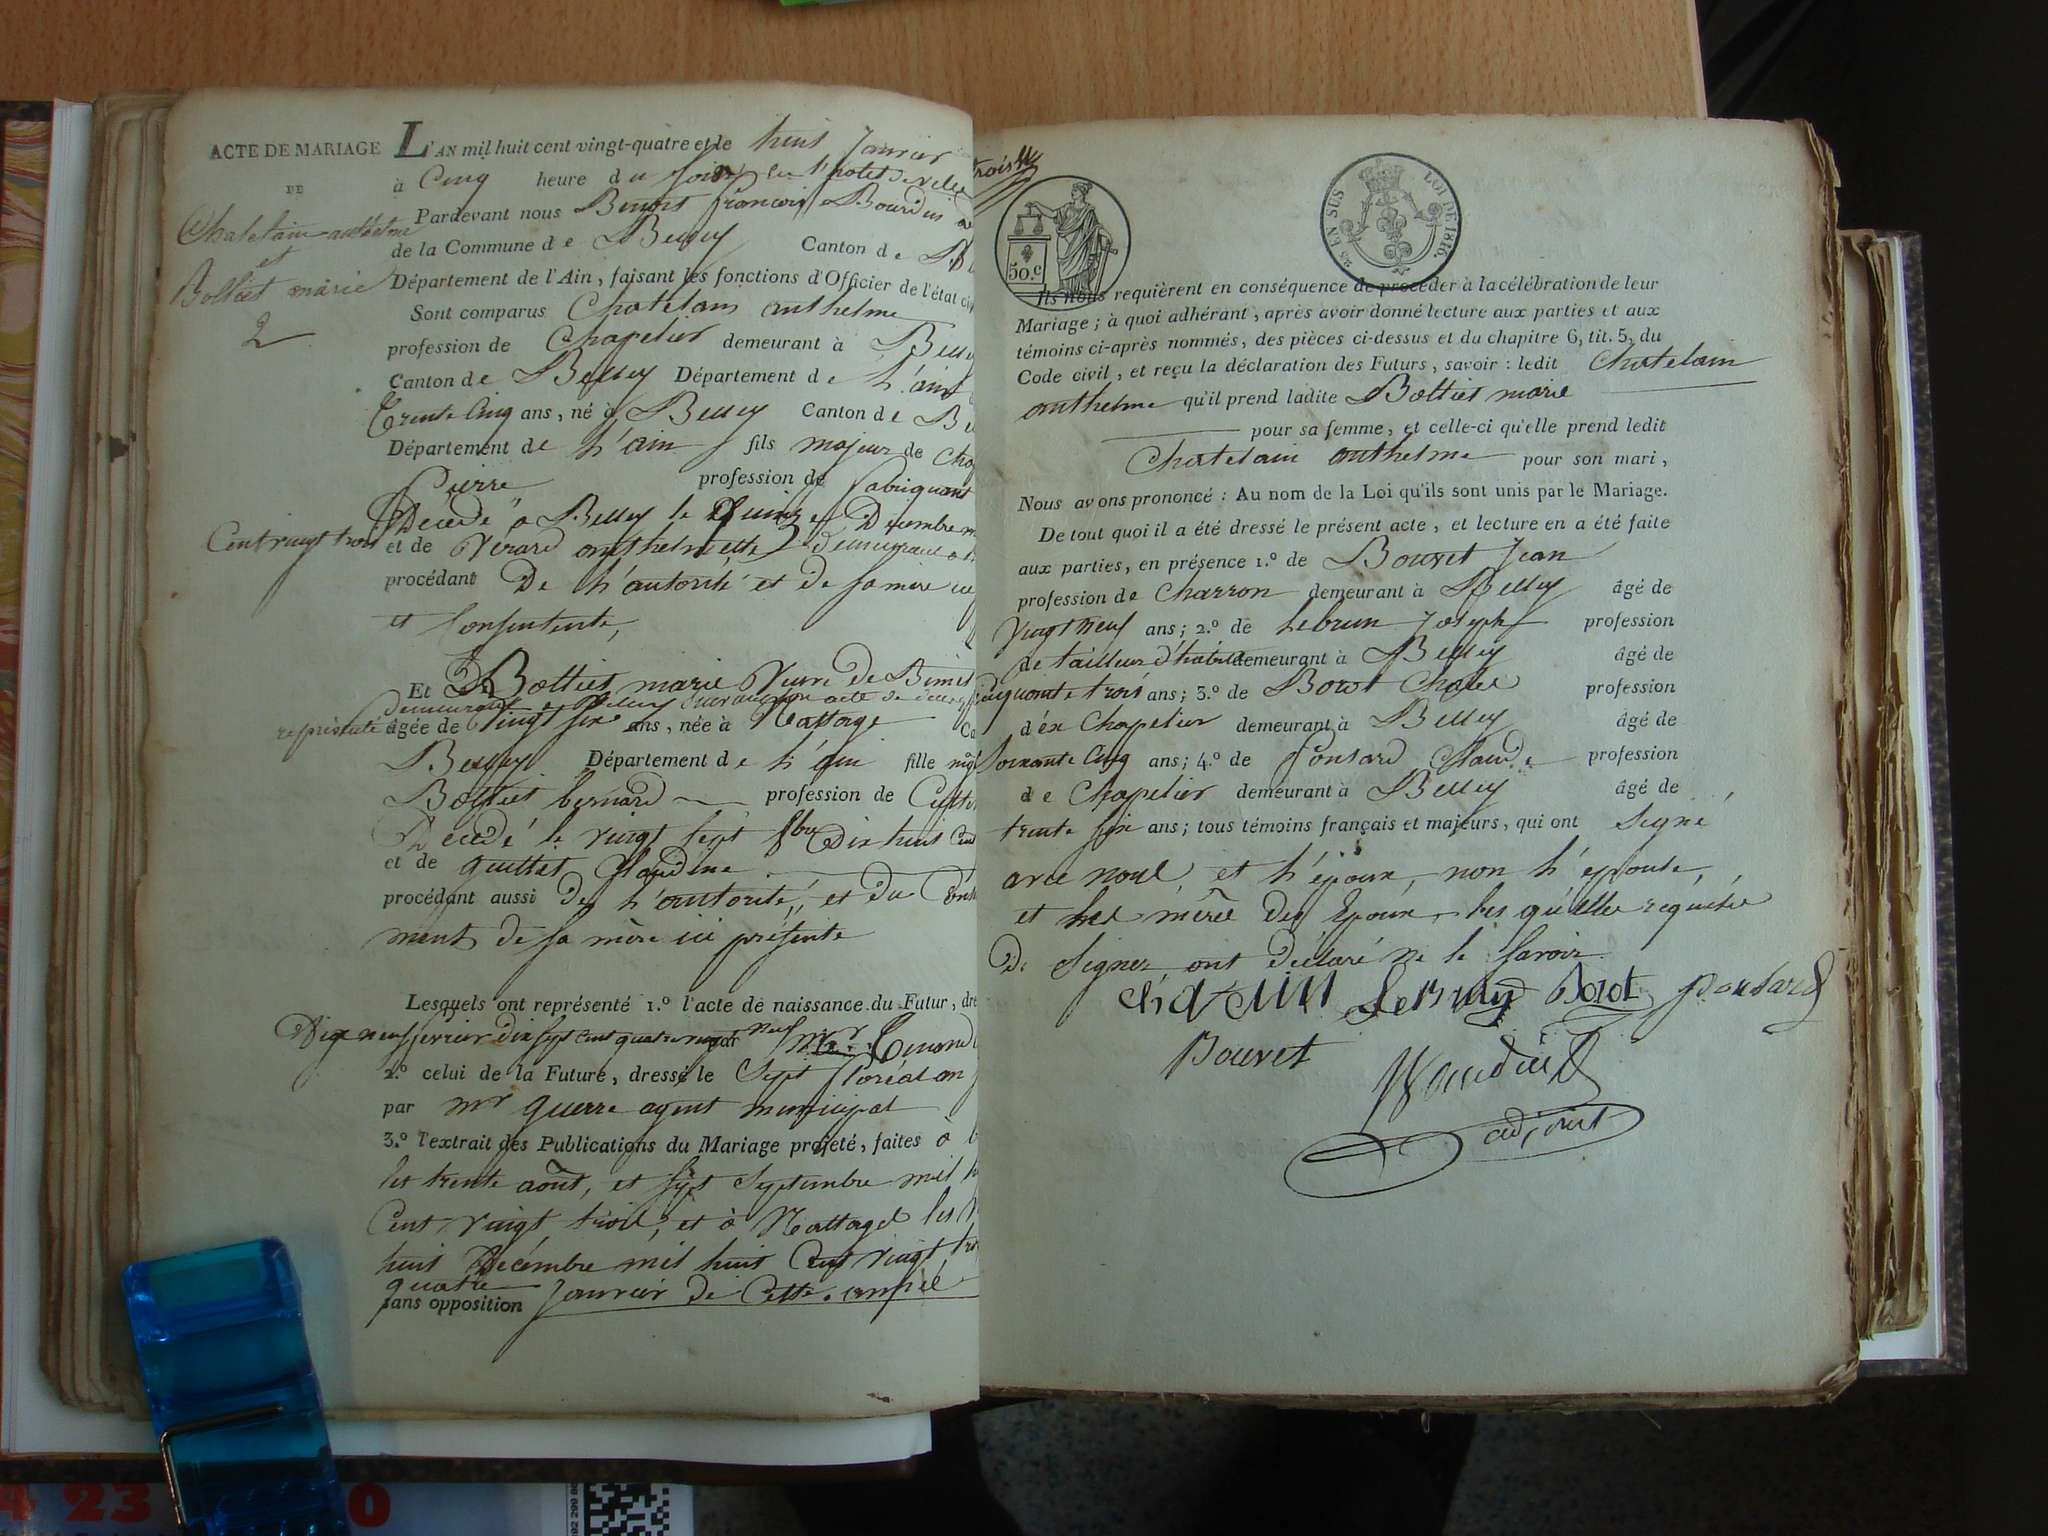 ACTE DE MARIAGE
DE
Chatelain anthelme
et
Bolliet marie
2
L'AN mil huit cent vingt-quatre et le huit Janvier
à Cinq heure du soir en l'hotel de ville
Pardevant nous Benoit françois Bourdin
de la Commune de Belley Canton de
Département de l'Ain, faisant les fonctions d'Officier de l'état
Sont comparus Chatelain anthelme
profession de Chapelier demeurant à
Canton de Belley Département de L'ain
Trente Cinq ans, né à Belley Canton de
Département de L'ain fils majeur de
Pierre profession de fabriquant
Décédé à Belley le Quinze Décembre
Cent vingt trois
et de Virard anthelmette demeurant à
procédant De L'autorité et De sa mère
et Consentente,
Et De Bolliet marie Veuve de
demeurant à Belley suivant son acte de
représenté
âgée de Vingt six ans, née à Nattage
Belley Département de L'ain fille
Bolliet bernard profession de
Décédé le vingt sept 8bre Dix huit Cent
et de guillet Claudine
procédant aussi De L'autorité, et du
ment de sa mère ici présente
Lesquels ont représenté 1.º l'acte de naissance du Futur,
Dix neuf fevrier dix sept cent quatre vingt neuf par Mr
2.º celui de la Future, dressé le Sept floréal an
par mr guerre agent municipal
3.º l'extrait des Publications du Mariage projeté, faites à
les trente août, et sept Septembre mil
Cent vingt trois, et à Nattage les
huit Décembre mil huit Cent vingt
quatre
sans opposition Janvier de Cette année
50.C
25 EN SUS
LOI DE 1816.
Ils nous requièrent en conséquence de procéder à la célébration de leur
Mariage; à quoi adhérant, après avoir donné lecture aux parties et aux
témoins ci-après nommés, des pièces ci-dessus et du chapitre 6, tit. 5, du
Code civil, et reçu la déclaration des Futurs, savoir: ledit Chatelain
anthelme qu'il prend ladite Bolliet marie
pour sa femme, et celle-ci qu'elle prend ledit
Chatelain anthelme pour son mari,
Nous avons prononcé: Au nom de la Loi qu'ils sont unis par le Mariage.
De tout quoi il a été dressé le présent acte, et lecture en a été faite
aux parties, en présence 1.º de Bouvet Jean
profession de Charron demeurant à Belley âgé de
Vingt neuf ans; 2.º de Lebrun Joseph profession
de tailleur d'habits demeurant à Belley âgé de
Cinquante trois ans; 3.º de Borot profession
d'éx Chapelier demeurant à Belley âgé de
Soixante Cinq ans; 4.º de Ponsard Claude profession
de Chapelier demeurant à Belley âgé de
trente six ans; tous témoins français et majeurs, qui ont Signé
avec nous, et L'époux, non L'epouse,
et les mères des Epoux, les qu'elles requises
De Signer, ont déclaré ne le savoir.
Lebrun Borot Ponsard
Bouvet
adjoint